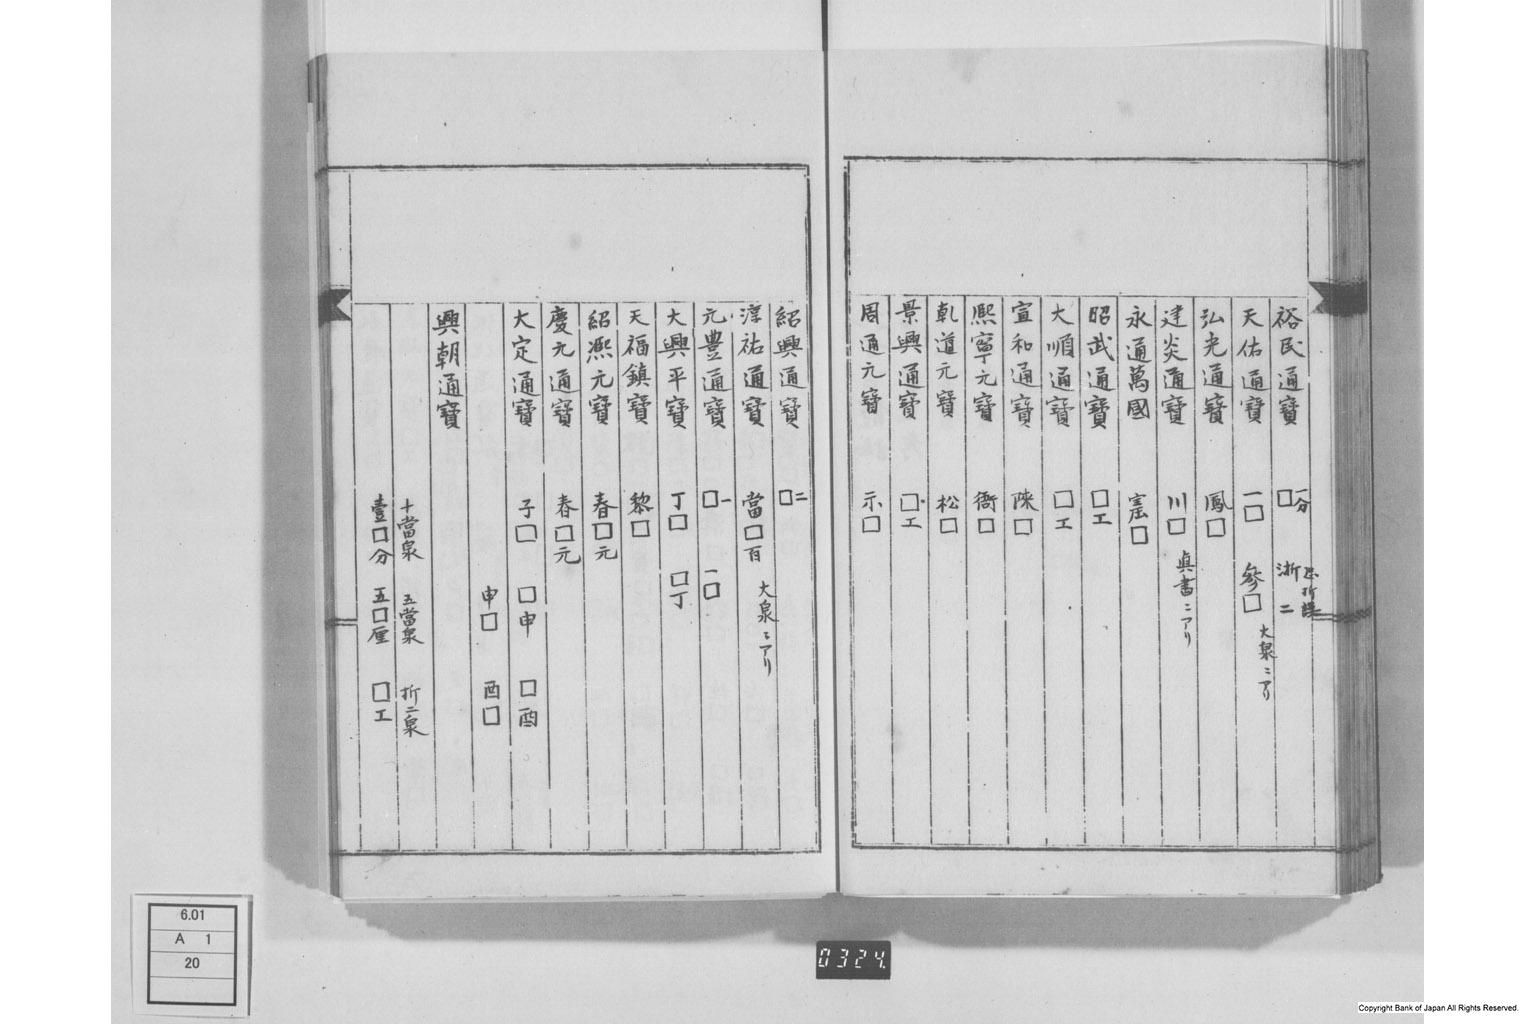 裕民通寶 □一分 浙二
天佑通寶 一□ 參□ 大泉ニアリ
弘光通寶 鳳□
建炎通寶 川□ 眞書ニアリ
永通萬國
昭武通寶 □工
大順通寶 □工
宣和通寶 陝□
熙寧元寶 衙□
乹道元寶 松□
景興通寶 □工
周通元寶 示□
紹興通寶 □二
淳祐通寶 當□百 大泉ニアリ
元豊通寶 □一 一□
大興平寶 丁□ □丁
天福鎮寶 黎□
紹凞元寶 春□元
慶元通寶 春□元
大定通寶 子□ □申 □酉
申□ 酉□
興朝通寶
十當泉 五當泉 折二泉
壹□分 五□厘 □工
6.01
A 1
20
0324
Copyright Bank of Japan All Rights Reserved.